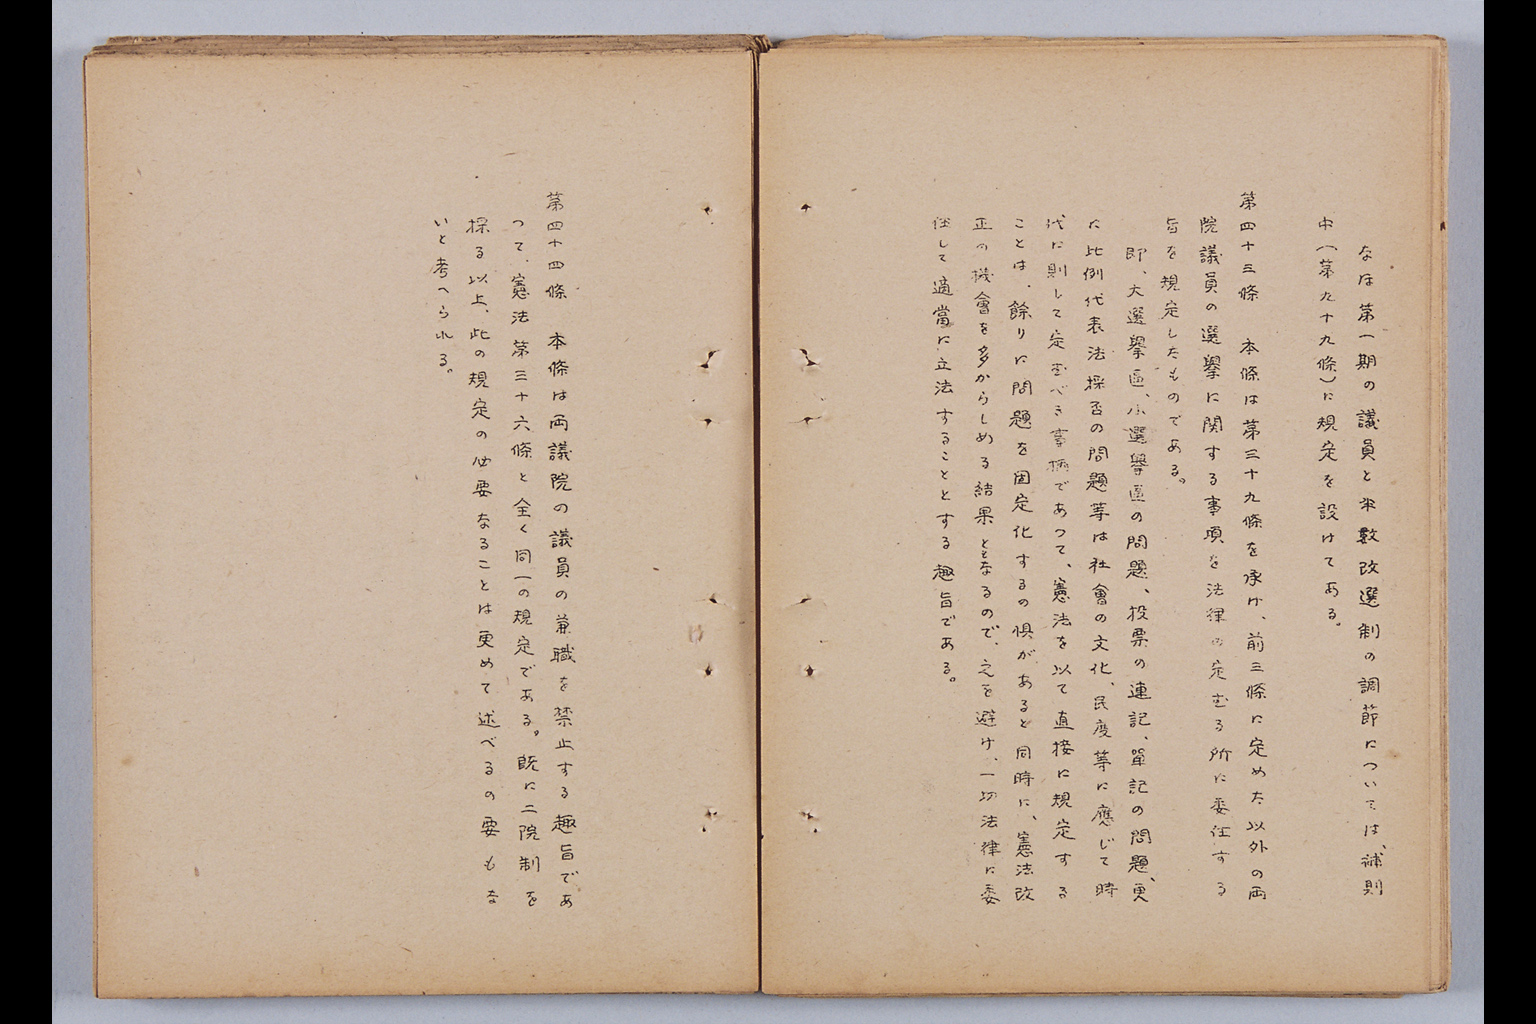 なほ第一期の議員と半數改選制の調節については、補則
中（第九十九條）に規定を設けてある。
第四十三條　本條は第三十九條を承け、前三條に定めた以外の両
院議員の選擧に関する事項を法律の定むる所に委任する
旨を規定したものである。
即、大選擧區、小選擧區の問題、投票の連記、單記の問題、更
に比例代表法採否の問題等は社會の文化、民度等に應じて時
代に則して定むべき事柄であつて、憲法を以て直接に規定する
ことは、餘りに問題を固定化するの惧があると同時に、憲法改
正の機會を多からしめる結果ともなるので、之を避け、一切法律に委
任して適當に立法することとする趣旨である。
第四十四條　本條は両議院の議員の兼職を禁止する趣旨であ
つて、憲法第三十六條と全く同一の規定である。既に二院制を
採る以上、此の規定の必要なることは更めて述べるの要もな
いと考へられる。